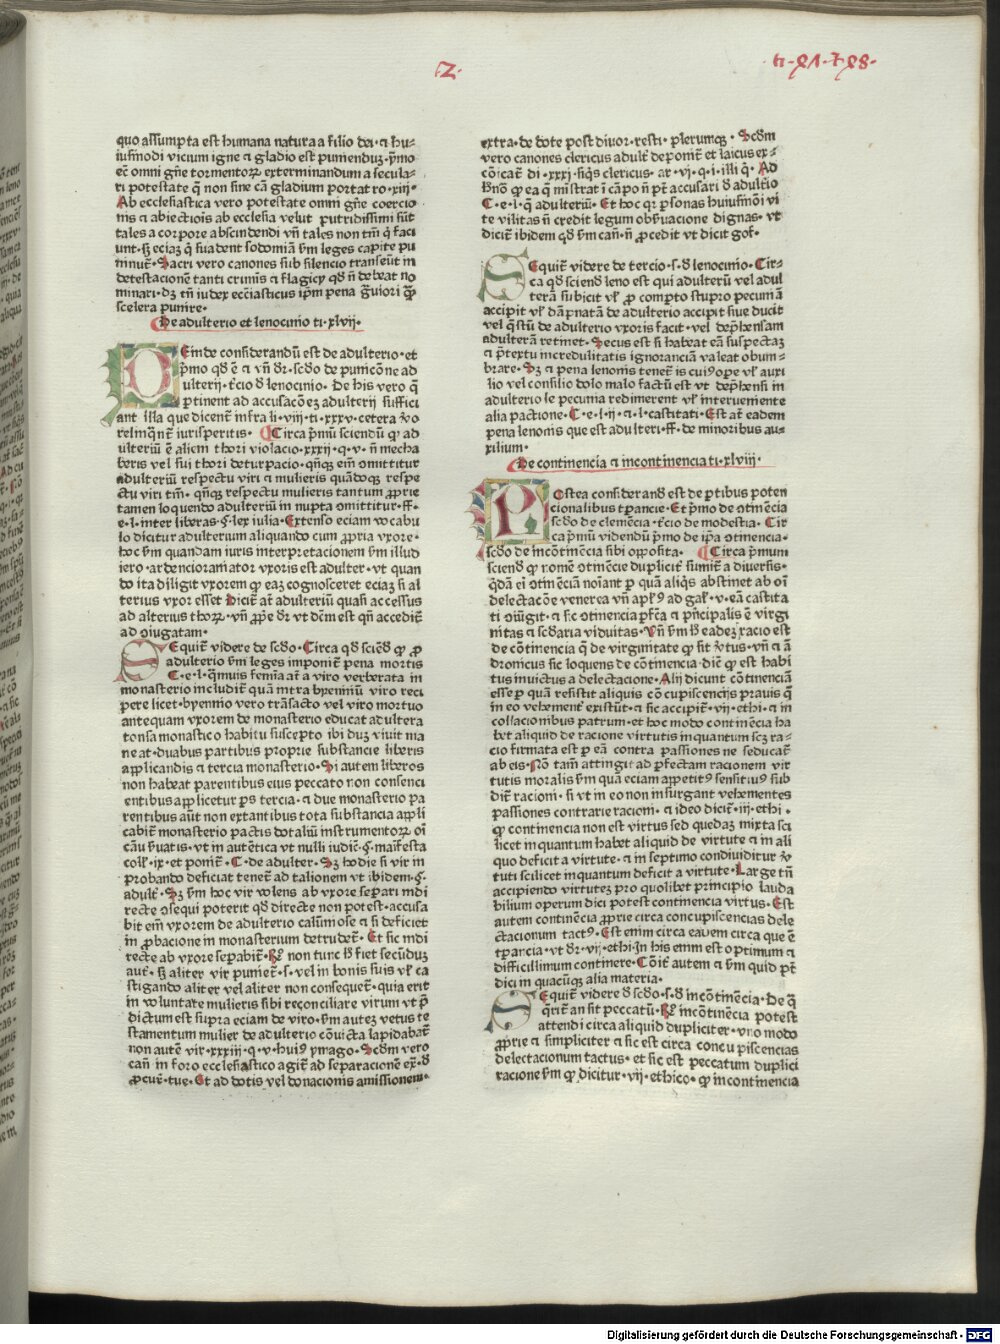 2.
quo assumpta est humana natura a filio dei · ⁊ hu⸗
iusmodi vicium igne ⁊ gladio est puniendū · pͥmo
eciam omni gñe tormentoꝝ exterminandum a secula⸗
ri potestate q̄ non sine cā gladium portat ro · xiij ·
Ab ecclesiastica vero potestate omni gñe coercio
nis ⁊ abiectiōis ab ecclesia velut putridissimi sūt
tales a corpore abscindendi vñ tales non tm̄ q̄ faci
unt · sꝫ eciaꝫ q̄ suadent sodomiā ẜm leges capite pu
niunt᷑ · Sacri vero canones sub silencio transeūt in
detestacionem tanti crimis ⁊ flagicij qd̄ ñ debeat no
minari · dꝫ tñ iudex ecc̄iasticus ip̄m pena g̃uiori q̄ꝫ
scelera punire ·
De adulterio et lenocinio ti · xlvij ·
Deinde considerandū est de adulterio · et
pͥmo qd̄ ē ⁊ vñ dr̄ · scd̄o de punicōne ad
ulterij · t̄cio d̄ lenocinio · De his vero q̄
ꝑtinent ad accusacōeꝫ adulterij suffici
ant illa que dicent᷑ infra li · viij · ti · xxxv · cetera v̄o
relinq̄nt᷑ iurisperitis · Circa pͥmū sciendū ꝙ ad
ulteriū ē alieni thori violacio · xxxij · q · v · ñ mecha
beris vel sui thori deturpacio · qñqꝫ eīm ꝯmittitur
adulteriū respectu viri ⁊ mulieris quādoqꝫ respe
ctu viri tm̄ · qñqꝫ respectu mulieris tantum ꝓprie
tamen loquendo adulteriū in nupta ꝯmittitur · ff ·
e · l · inter liberas · §· lex iulia · Extenso eciam vocabu
lo dicitur adulterium aliquando cum ꝓpria vxore ·
hoc ẜm quandam iuris interpretacionem ẜm illud
iero · ardencior amator vxoris est adulter · vt quan
do ita diligit vxorem ꝙ eaꝫ cognosceret eciaꝫ si al
terius vxor esset Dicit᷑ at᷑ adulteriū quasi accessus
ad alterius thoꝝ · vñ ꝓpͥe dr̄ vt dēm est qñ accedit᷑
ad ꝯiugatam ·
Sequit᷑ videre de scd̄o · Circa qd̄ sciēd̄ ꝙ ꝓ
adulterio ẜm leges imponit᷑ pena mortis
C · e · l · q̄muis femīa at᷑ a viro verberata in
monasterio includit᷑ quā intra byenniū viro reci
pere licet · byennio vero trāsacto vel viro mortuo
antequam vxorem de monasterio educat adultera
tonsa monastico habitu suscepto ibi dū viuit ma
neat · duabus partibus proprie substancie liberis
applicandis ⁊ tercia monasterio · Si autem liberos
non habeat parentibus eius peccato non consenci
entibus applicetur ꝑs tercia · ⁊ due monasterio pa
rentibus aūt non extantibus tota substancia appli
cabit᷑ monasterio pactis dotaliū instrumentoꝝ oī
cāū ẜuatis · vt in autētica vt nulli iudic̄ · §· mairesta
coll̄ · ix · et ponit᷑ · C · de adulter · Sꝫ hodie si vir in
probando deficiat tenet᷑ ad talionem vt ibidem · §·
adult᷑ · Sꝫ ẜm hoc vir volens ab vxore sep̄ari indi
recte ꝯsequi poterit qd̄ directe non potest · accusa
bit eīm vxorem de adulterio calūmiose ⁊ si deficiet
in ꝓbacione in monasterium detrudet᷑ · Et sic indi
recte ab vxore separabit᷑ · ℞ non tunc h̄ fiet secūdū
aut᷑ · sꝫ aliter vir puniet᷑ · s · vel in bonis suis vl̄ ca
stigando aliter vel aliter non consequet᷑ · quia erit
in voluntate mulieris sibi reconciliare virum vt p̄
dictum est supra eciam de viro · ẜm auteꝫ vetus te
stamentum mulier de adulterio cōuicta lapidabat᷑
non autē vir · xxxij · q · v · huiꝰ ymago · Scd̄m vero
cañ in foro ecclesiastico agit᷑ ad separacionē ex · d̄
ꝓcur · tue · Et ad dotis vel donacionis amissionem ·
extra · de dote post diuor · resti · plerumqꝫ · Scd̄m
vero canones clericus adult᷑ deponit᷑ et laicus ex⸗
cōicat᷑ di · xxxi · siq̄s clericus · ar · vi · q · i · illi q̄ · Ad
h̄ · nō ꝙ ea q̄ ministrat ī cāpo ñ pt̄ accusari d̄ adult̄io
C · e · l · q̄ adulteriū · Et hoc qꝛ ꝑsonas huiusmōi vi
te vilitas ñ credit legum obẜuacione dignas · vt
dicit᷑ ibidem qd̄ ẜm cañ · ñ ꝓcedit vt dicit gof ·
Sequit᷑ videre de tercio · s · d̄ lenocinio · Cir⸗
ca qd̄ sciend̄ leno est qui adulterū vel adul
terā subicit vl̄ ꝓ compto stupro pecuniā
accipit vl̄ dāpnatā de adulterio accipit siue ducit
vel q̄stū de adulterio vxoris facit · vel dep̄hensam
adulterā retinet · Secus est si habeat eā suspectaꝫ
⁊ p̄textu incredulitatis ignoranciā valeat obum⸗
brare · Sꝫ ⁊ pena lenonis tenet᷑ is cuiꝰ ope vl̄ auxi
lio vel consilio dolo malo factū est vt dep̄hensi in
adulterio se pecunia redimerent vl̄ interueniente
alia pactione · C · e · l · ij · ⁊ · l · castitati · Est at᷑ eadem
pena lenonis que est adulteri · ff · de minoribus au⸗
xilium ·
De continencia ⁊ incontinencia ti · xlviij ·
Postea considerand̄ est de ꝑtibus poten
cionalibus tꝑancie · Et pͥmo de ꝯtinēcia
scd̄o de clemēcia · t̄cio de modestia · Cir
ca pͥmū videndū pͥmo de ip̄a ꝯtinencia ·
scd̄o de incōtinēcia sibi opposita · Circa pͥmum
sciend̄ ꝙ nomē ꝯtinēcie duplicit᷑ sumit᷑ a diuersis ·
q̄dā eī ꝯtinēciā noīant ꝑ quā aliq̄s abstinet ab oī
delectacōe venerea vñ apl̄ꝰ ad gal̄ · v · eā castita
ti ꝯiūgit · ⁊ sic ꝯtinēcia ꝑfc̄a ⁊ pͥncipalis ē virgi
nitas ⁊ scd̄aria viduitas · Vñ ẜm h̄ eadeꝫ racio est
de cōtinencia q̄ de virginitate ꝙ sit v̄tus · vñ ⁊ ā
dronicus sic loquens de cōtinencia · diē ꝙ est habi
tus inuictus a delectacione · Alij dicunt cōtinenciā
esse ꝑ quā resistit aliquis cōcupiscencijs prauis q̄
in eo vehement᷑ existūt · ⁊ sic accipit᷑ · vij · ethi · ⁊ in
collacionibus patrum · et hoc modo continēcia ha
bet aliquid de racione virtutis inquantum scꝫ ra⸗
cio firmata est ꝑ eā contra passiones ne seducat᷑
ab eis · Nō tam̄ attingit ad ꝑfectam racionem vir
tutis moralis ẜm quā eciam appetitꝰ sensitiuꝰ sub
dit᷑ racioni · si vt in eo non insurgant vehementes
passiones contrarie racioni · ⁊ ideo dicit᷑ · iij · ethi ·
ꝙ continencia non est virtus sed quedaꝫ mixta sci
licet inquantum habet aliquid de virtute ⁊ in ali
quo deficit a virtute · ⁊ in septimo condiuiditur v̄
tuti scilicet inquantum deficit a virtute · Large tñ
accipiendo virtuteꝫ pro quolibet principio lauda
bilium operum dici potest continencia virtus · Est
autem continēcia ꝓprie circa concupiscencias dele
ctacionum tactꝰ · Est enim circa eadem circa que ē
tꝑancia · vt dr̄ · vij · ethi · In his enim est optimum ⁊
difficillimum continere · Cōit᷑ autem ⁊ ẜm quid pt̄
dici in quacūqꝫ alia materia ·
Sequit᷑ videre d̄ scd̄o · s · d̄ incōtinēcia · De q̄
q̄rit᷑ an sit peccatū · ℞ incōtinēcia potest
attendi circa aliquid dupliciter · vno modo
ꝓprie ⁊ simpliciter ⁊ sic est circa concupiscencias
delectacionum tactus · et sic est peccatum duplici
racione ẜm ꝙ dicitur · vij · ethico · ꝙ incontinencia
Digitalisierung gefördert durch die Deutsche Forschungsgemeinschaft - DFG